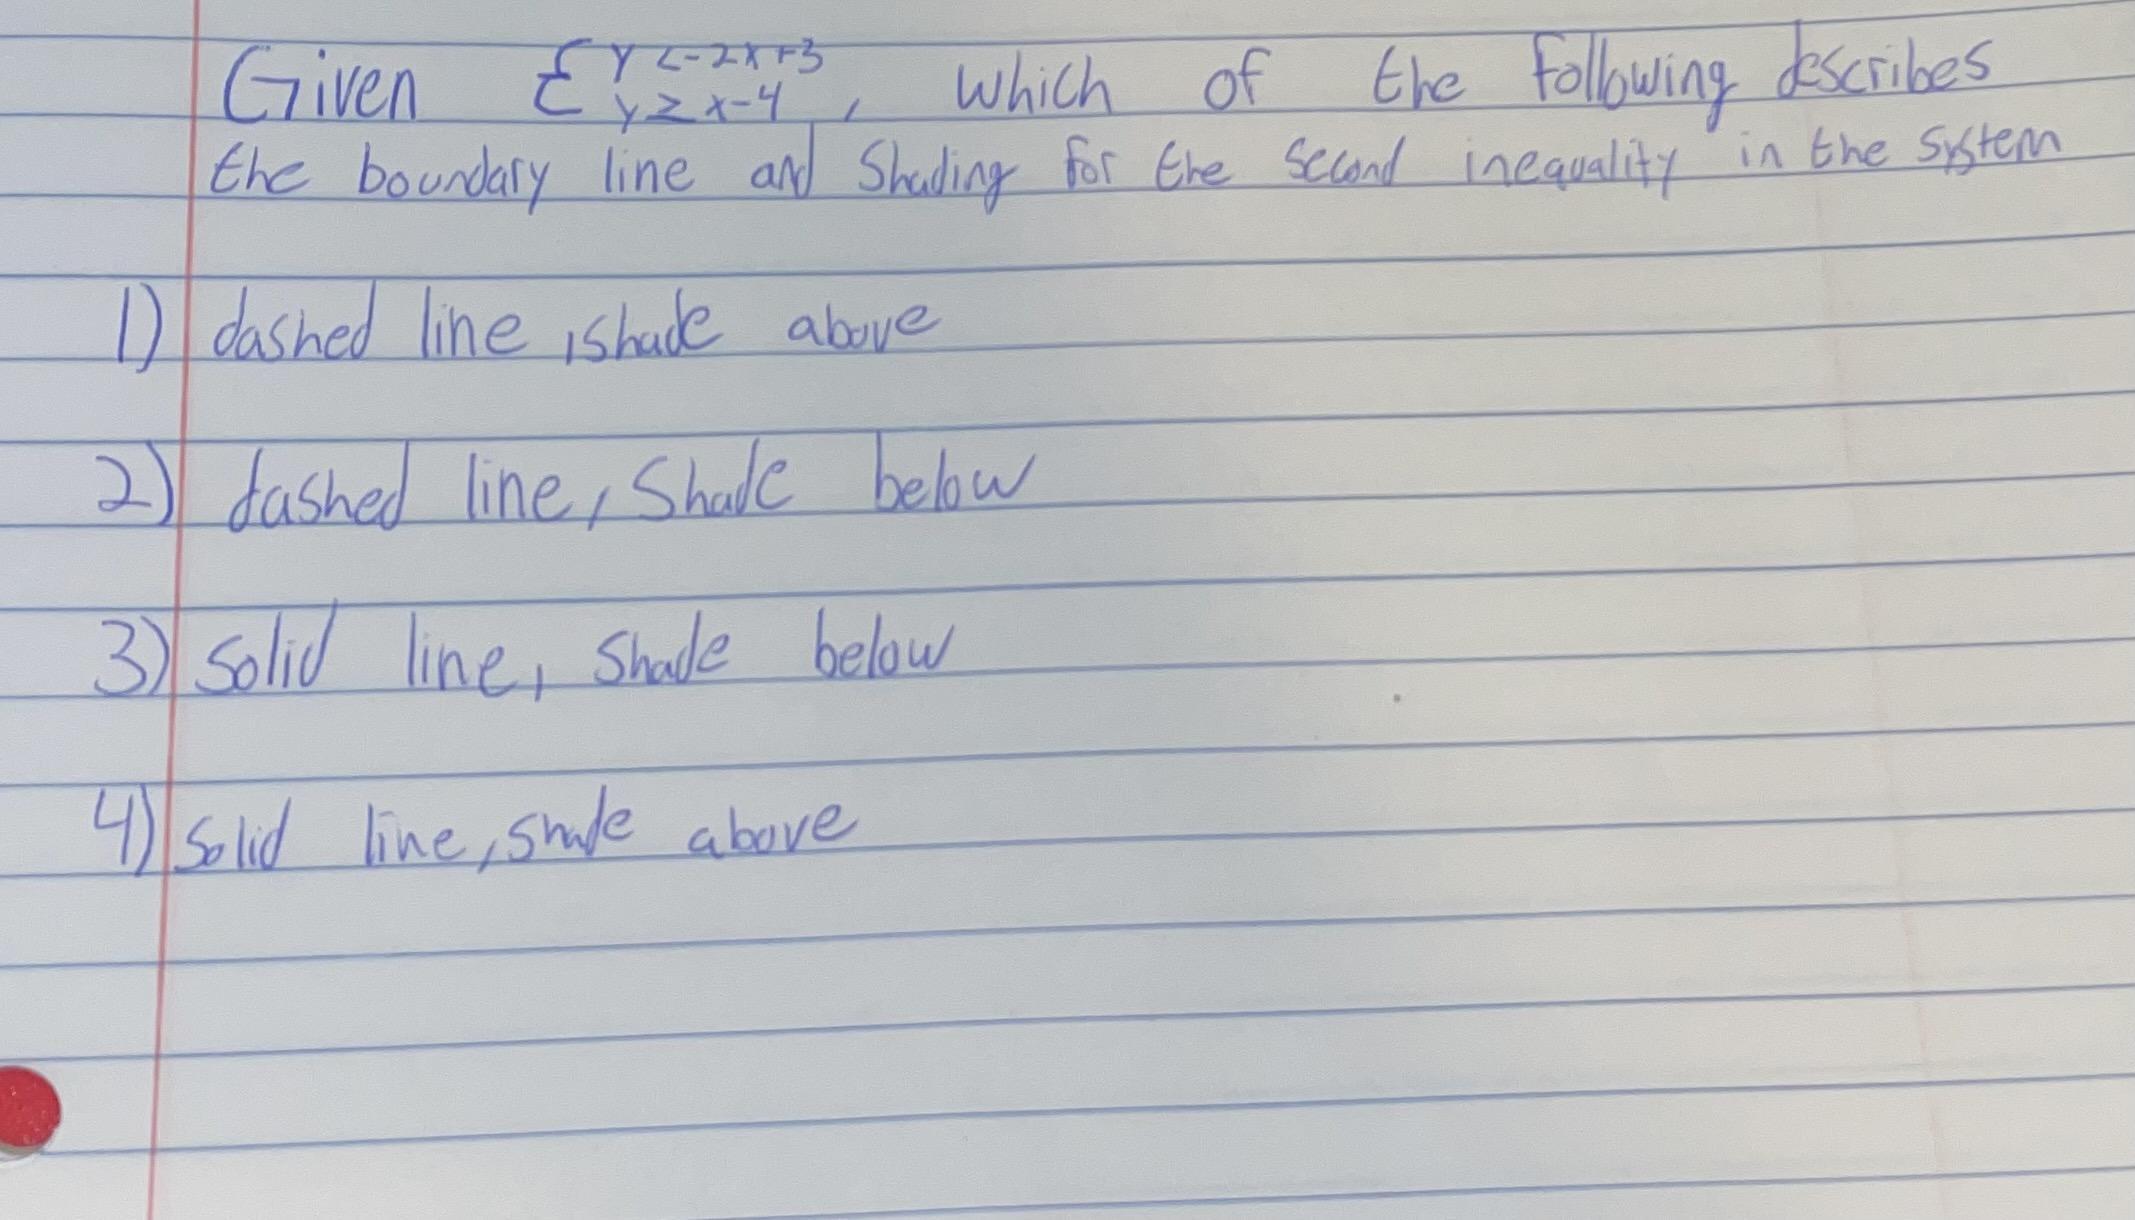 Given { y < -2x + 3
y ≥ x - 4 , which of the following describes
the boundary line and shading for the second inequality in the system
1) dashed line, shade above
2) dashed line, shade below
3) solid line, shade below
4) solid line, shade above